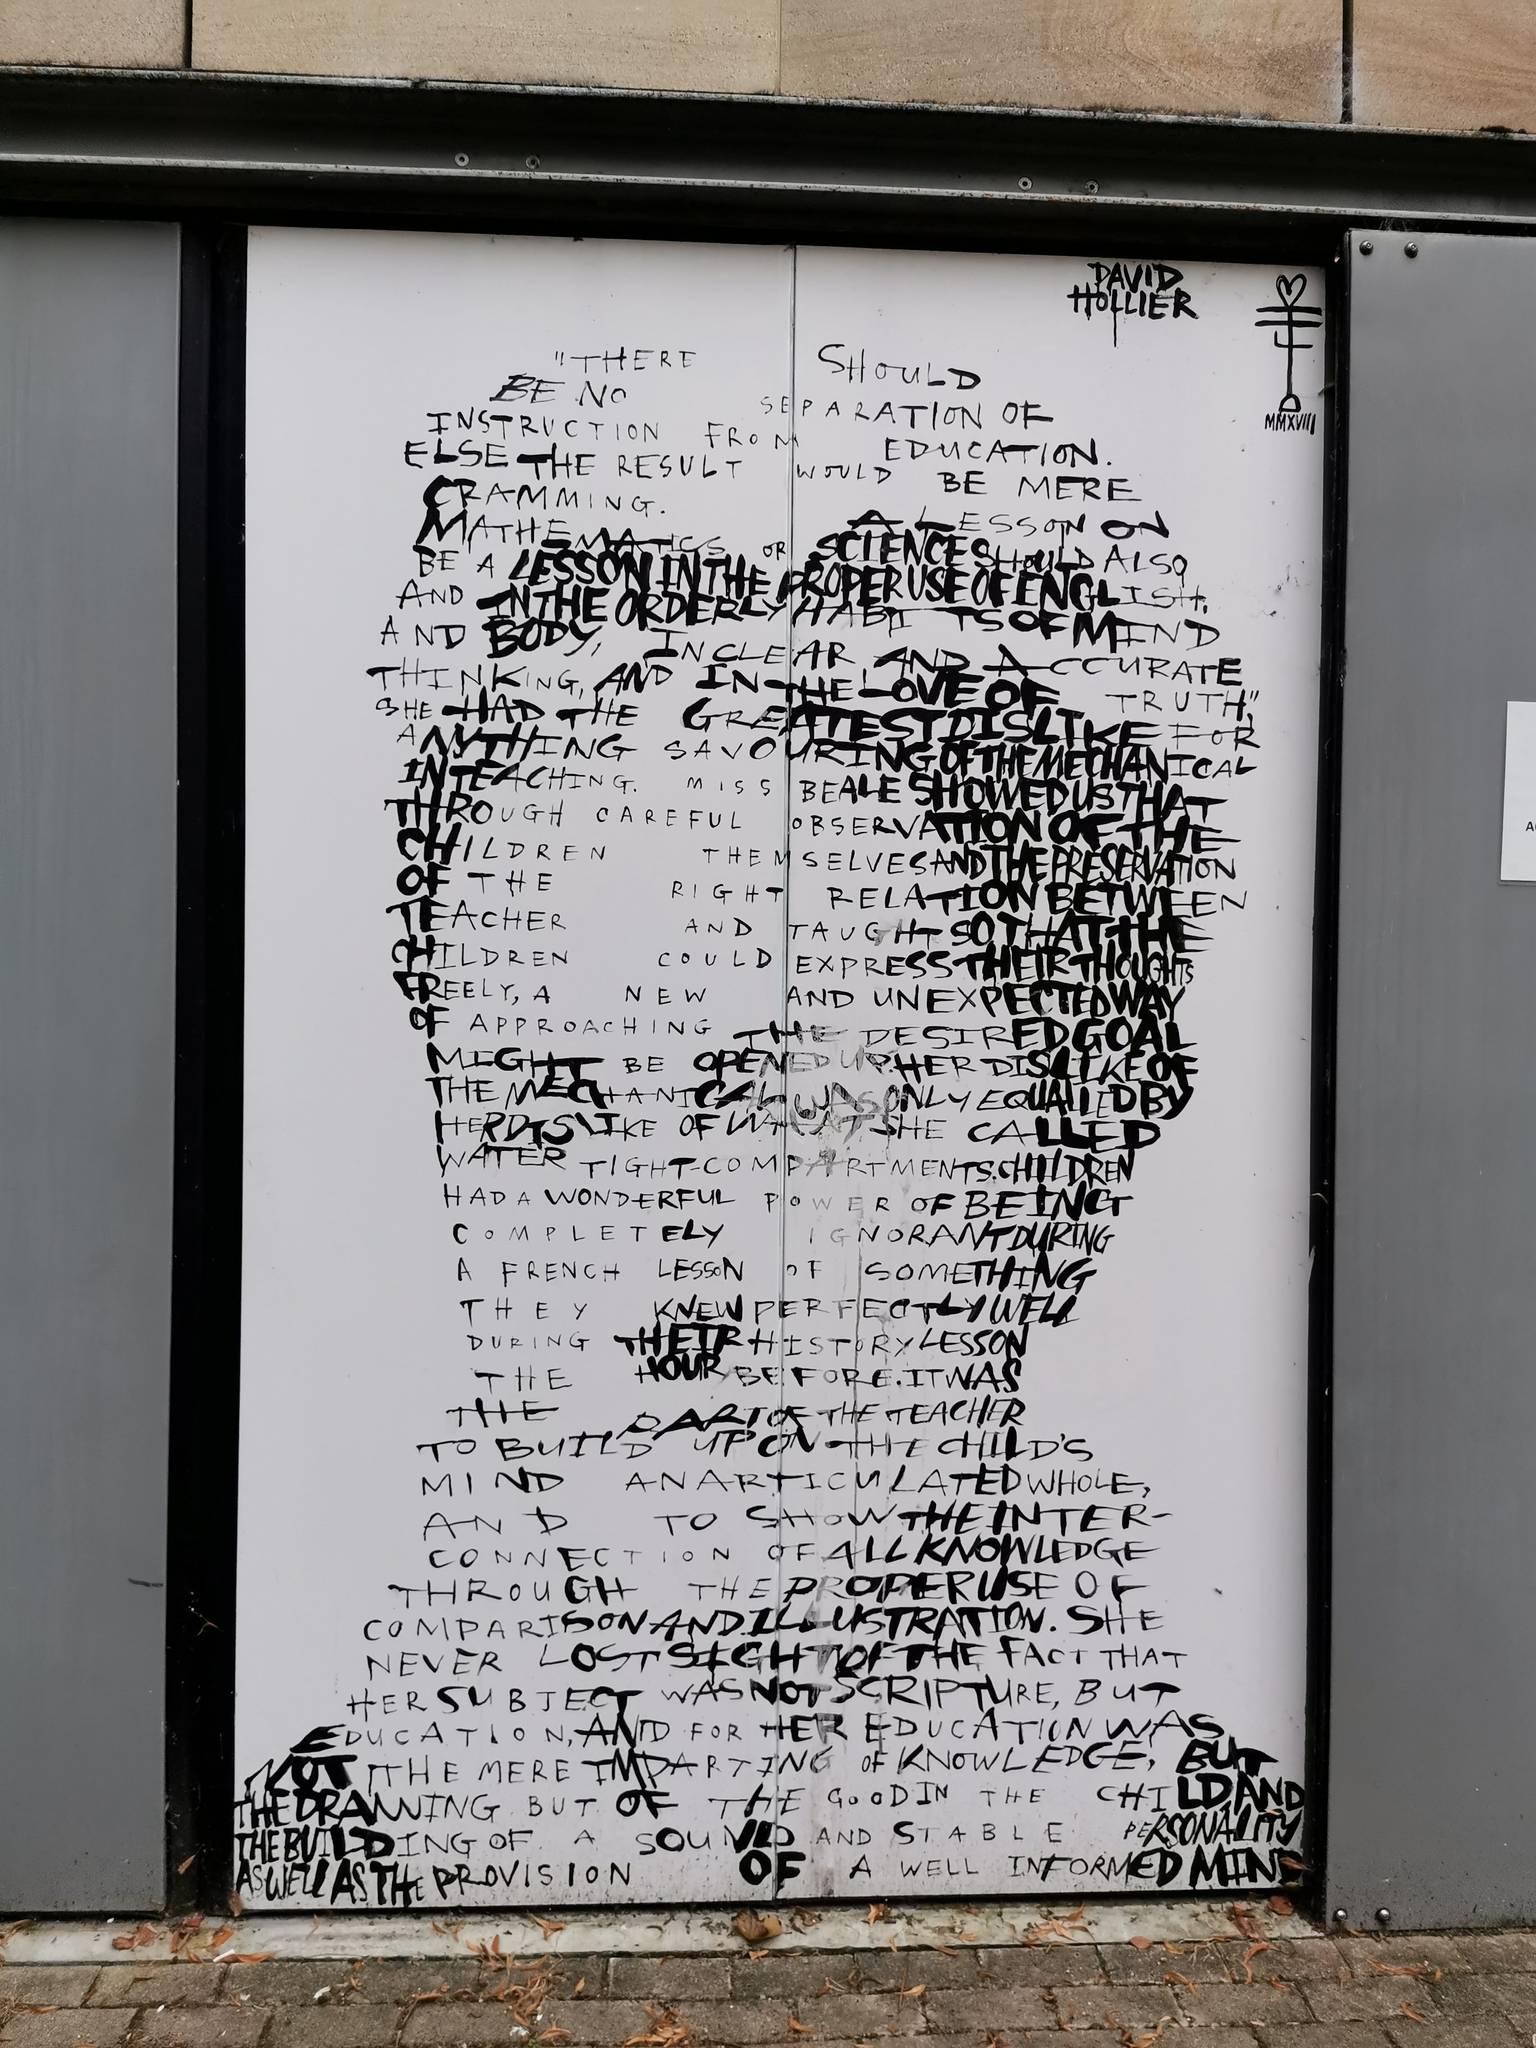 DAVID
HOLLIER
MMXVIII
"THERE SHOULD
BE NO SEPARATION OF
INSTRUCTION FROM EDUCATION.
ELSE THE RESULT WOULD BE MERE
CRAMMING. A LESSON ON
MATHEMATICS OR SCIENCE SHOULD ALSO
BE A LESSON IN THE PROPER USE OF ENGLISH,
AND IN THE ORDERLY HABITS OF MIND
AND BODY, IN CLEAR AND ACCURATE
THINKING, AND IN THE LOVE OF TRUTH",
SHE HAD THE GREATEST DISLIKE FOR
ANYTHING SAVOURING OF THE MECHANICAL
IN TEACHING. MISS BEALE SHOWED US THAT
THROUGH CAREFUL OBSERVATION OF THE
CHILDREN THEMSELVES AND THE PRESERVATION
OF THE RIGHT RELATION BETWEEN
TEACHER AND TAUGHT SO THAT THE
CHILDREN COULD EXPRESS THEIR THOUGHTS
FREELY, A NEW AND UNEXPECTED WAY
OF APPROACHING THE DESIRED GOAL
MIGHT BE OPENED UP. HER DISLIKE OF
THE MECHANICAL WAS ONLY EQUALLED BY
HER DISLIKE OF WHAT SHE CALLED
WATER TIGHT-COMPARTMENTS. CHILDREN
HAD A WONDERFUL POWER OF BEING
COMPLETELY IGNORANT DURING
A FRENCH LESSON OF SOMETHING
THEY KNEW PERFECTLY WELL
DURING THEIR HISTORY LESSON
THE HOUR BEFORE. IT WAS
THE PART OF THE TEACHER
TO BUILD UP ON THE CHILD'S
MIND AN ARTICULATED WHOLE,
AND TO SHOW THE INTER-
CONNECTION OF ALL KNOWLEDGE
THROUGH THE PROPER USE OF
COMPARISON AND ILLUSTRATION. SHE
NEVER LOST SIGHT OF THE FACT THAT
HER SUBJECT WAS NOT SCRIPTURE, BUT
EDUCATION, AND FOR HER EDUCATION WAS
NOT THE MERE IMPARTING OF KNOWLEDGE, BUT
THE DRAWING BUT OF THE GOOD IN THE CHILD AND
THE BUILDING OF A SOUND AND STABLE PERSONALITY
AS WELL AS THE PROVISION OF A WELL INFORMED MIND